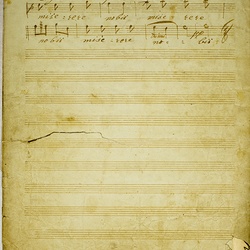 mise: rere nobis mise: rere
nobis mise: rere no: : bis